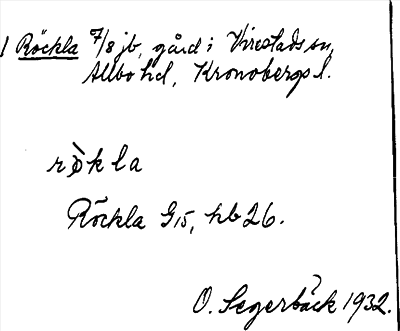 1 Röckla 7/8 jb, gård i Virestads sn,
Allbo hd, Kronobergs l.
rò̵kla
Röckla G15, hb 26.
O. Segerbäck 1932.